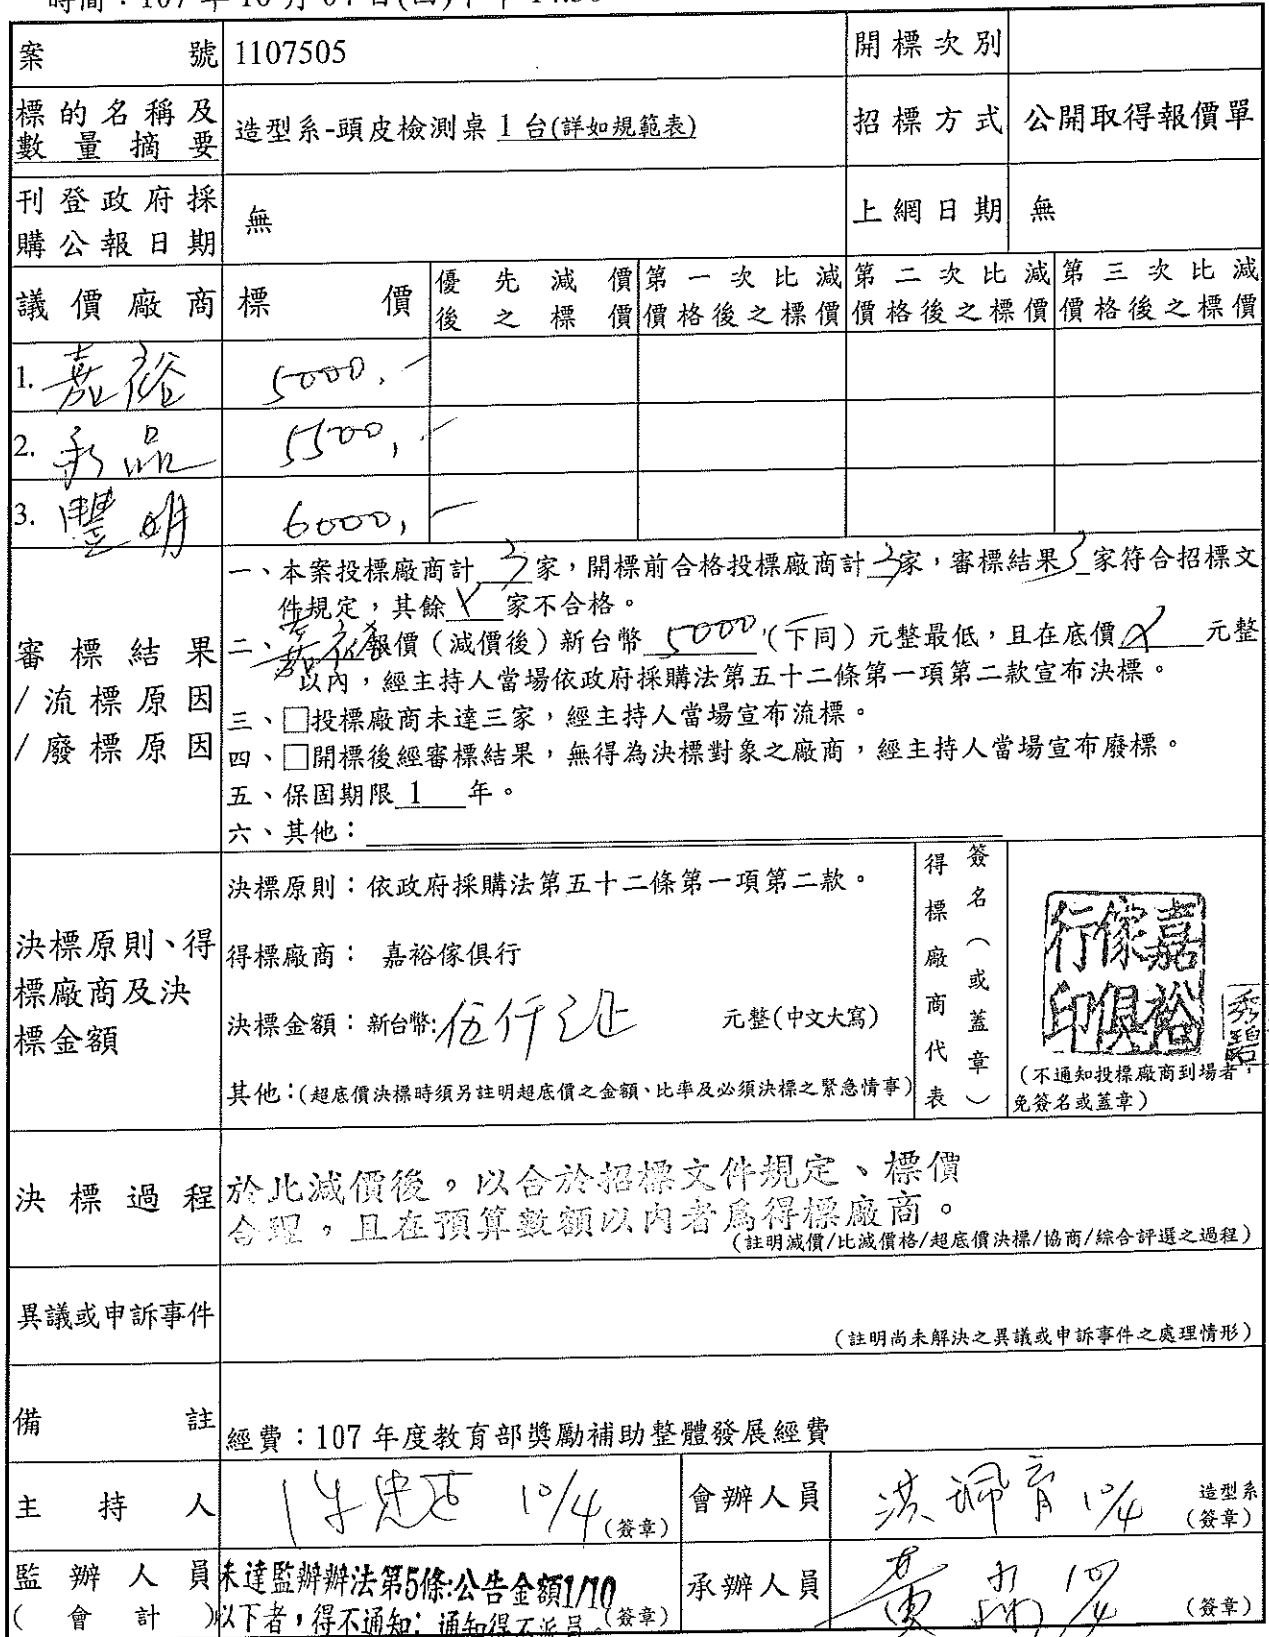 案號 1107505 開標次別
標的名稱及數量摘要 造型系-頭皮檢測桌 1 台(詳如規範表) 招標方式 公開取得報價單
刊登政府採購公報日期 無 上網日期 無
議價廠商 標價 優先減價後之標價 第一次比減價格後之標價 第二次比減價格後之標價 第三次比減價格後之標價
1. 嘉裕 5000,-
2. 品 5500,-
3. 豐明 6000,-
審標結果/流標原因/廢標原因
一、本案投標廠商計 3 家，開標前合格投標廠商計 3 家，審標結果 3 家符合招標文
件規定，其餘 X 家不合格。
二、嘉裕 報價（減價後）新台幣 5000 （下同）元整最低，且在底價 X 元整
以內，經主持人當場依政府採購法第五十二條第一項第二款宣布決標。
三、□投標廠商未達三家，經主持人當場宣布流標。
四、□開標後經審標結果，無得為決標對象之廠商，經主持人當場宣布廢標。
五、保固期限 1 年。
六、其他：
決標原則、得標廠商及決標金額
決標原則：依政府採購法第五十二條第一項第二款。
得標廠商： 嘉裕傢俱行
決標金額：新台幣:伍仟 元整(中文大寫)
其他：(超底價決標時須另註明超底價之金額、比率及必須決標之緊急情事)
得標廠商代表簽名（或蓋章）
嘉裕傢俱行印
秀碧
(不通知投標廠商到場者，
免簽名或蓋章)
決標過程
於比減價後，以合於招標文件規定、標價
合理，且在預算數額以內者為得標廠商。
(註明減價/比減價格/超底價決標/協商/綜合評選之過程)
異議或申訴事件
(註明尚未解決之異議或申訴事件之處理情形)
備註 經費：107 年度教育部獎勵補助整體發展經費
主持人 10/4 (簽章) 會辦人員 洪珮育 10/4 造型系
(簽章)
監辦人員(會計) 未達監辦辦法第5條:公告金額1/10
以下者，得不通知; 通知得不派員。(簽章)
承辦人員 黃 10/4 (簽章)